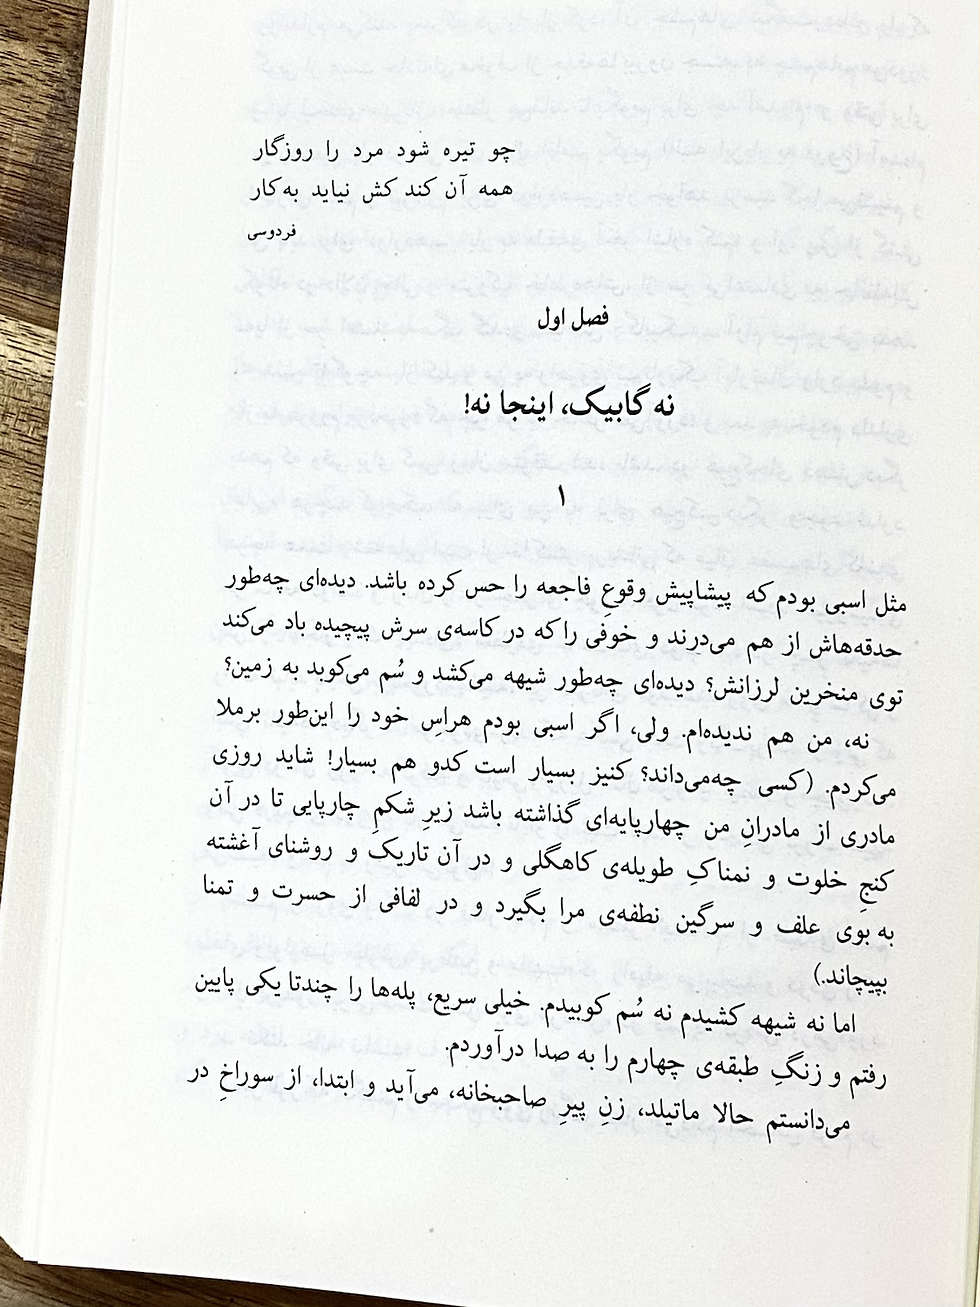 چو تیره شود مرد را روزگار
همه آن کند کش نیاید به‌کار
فردوسی
فصل اول
نه گابیک، اینجا نه!
۱
مثل اسبی بودم که پیشاپیش وقوعِ فاجعه را حس کرده باشد. دیده‌ای چه‌طور
حدقه‌هاش از هم می‌درند و خوفی را که در کاسه‌ی سرش پیچیده باد می‌کند
توی منخرین لرزانش؟ دیده‌ای چه‌طور شیهه می‌کشد و سُم می‌کوبد به زمین؟
نه، من هم ندیده‌ام. ولی، اگر اسبی بودم هراسِ خود را این‌طور برملا
می‌کردم. (کسی چه‌می‌داند؟ کنیز بسیار است کدو هم بسیار! شاید روزی
مادری از مادرانِ من چهارپایه‌ای گذاشته باشد زیرِ شکمِ چارپایی تا در آن
کنجِ خلوت و نمناکِ طویله‌ی کاهگلی و در آن تاریک و روشنای آغشته
به بوی علف و سرگین نطفه‌ی مرا بگیرد و در لفافی از حسرت و تمنا
بپیچاند.)
اما نه شیهه کشیدم نه سُم کوبیدم. خیلی سریع، پله‌ها را چندتا یکی پایین
رفتم و زنگِ طبقه‌ی چهارم را به صدا درآوردم.
می‌دانستم حالا ماتیلد، زنِ پیرِ صاحبخانه، می‌آید و ابتدا، از سوراخِ در